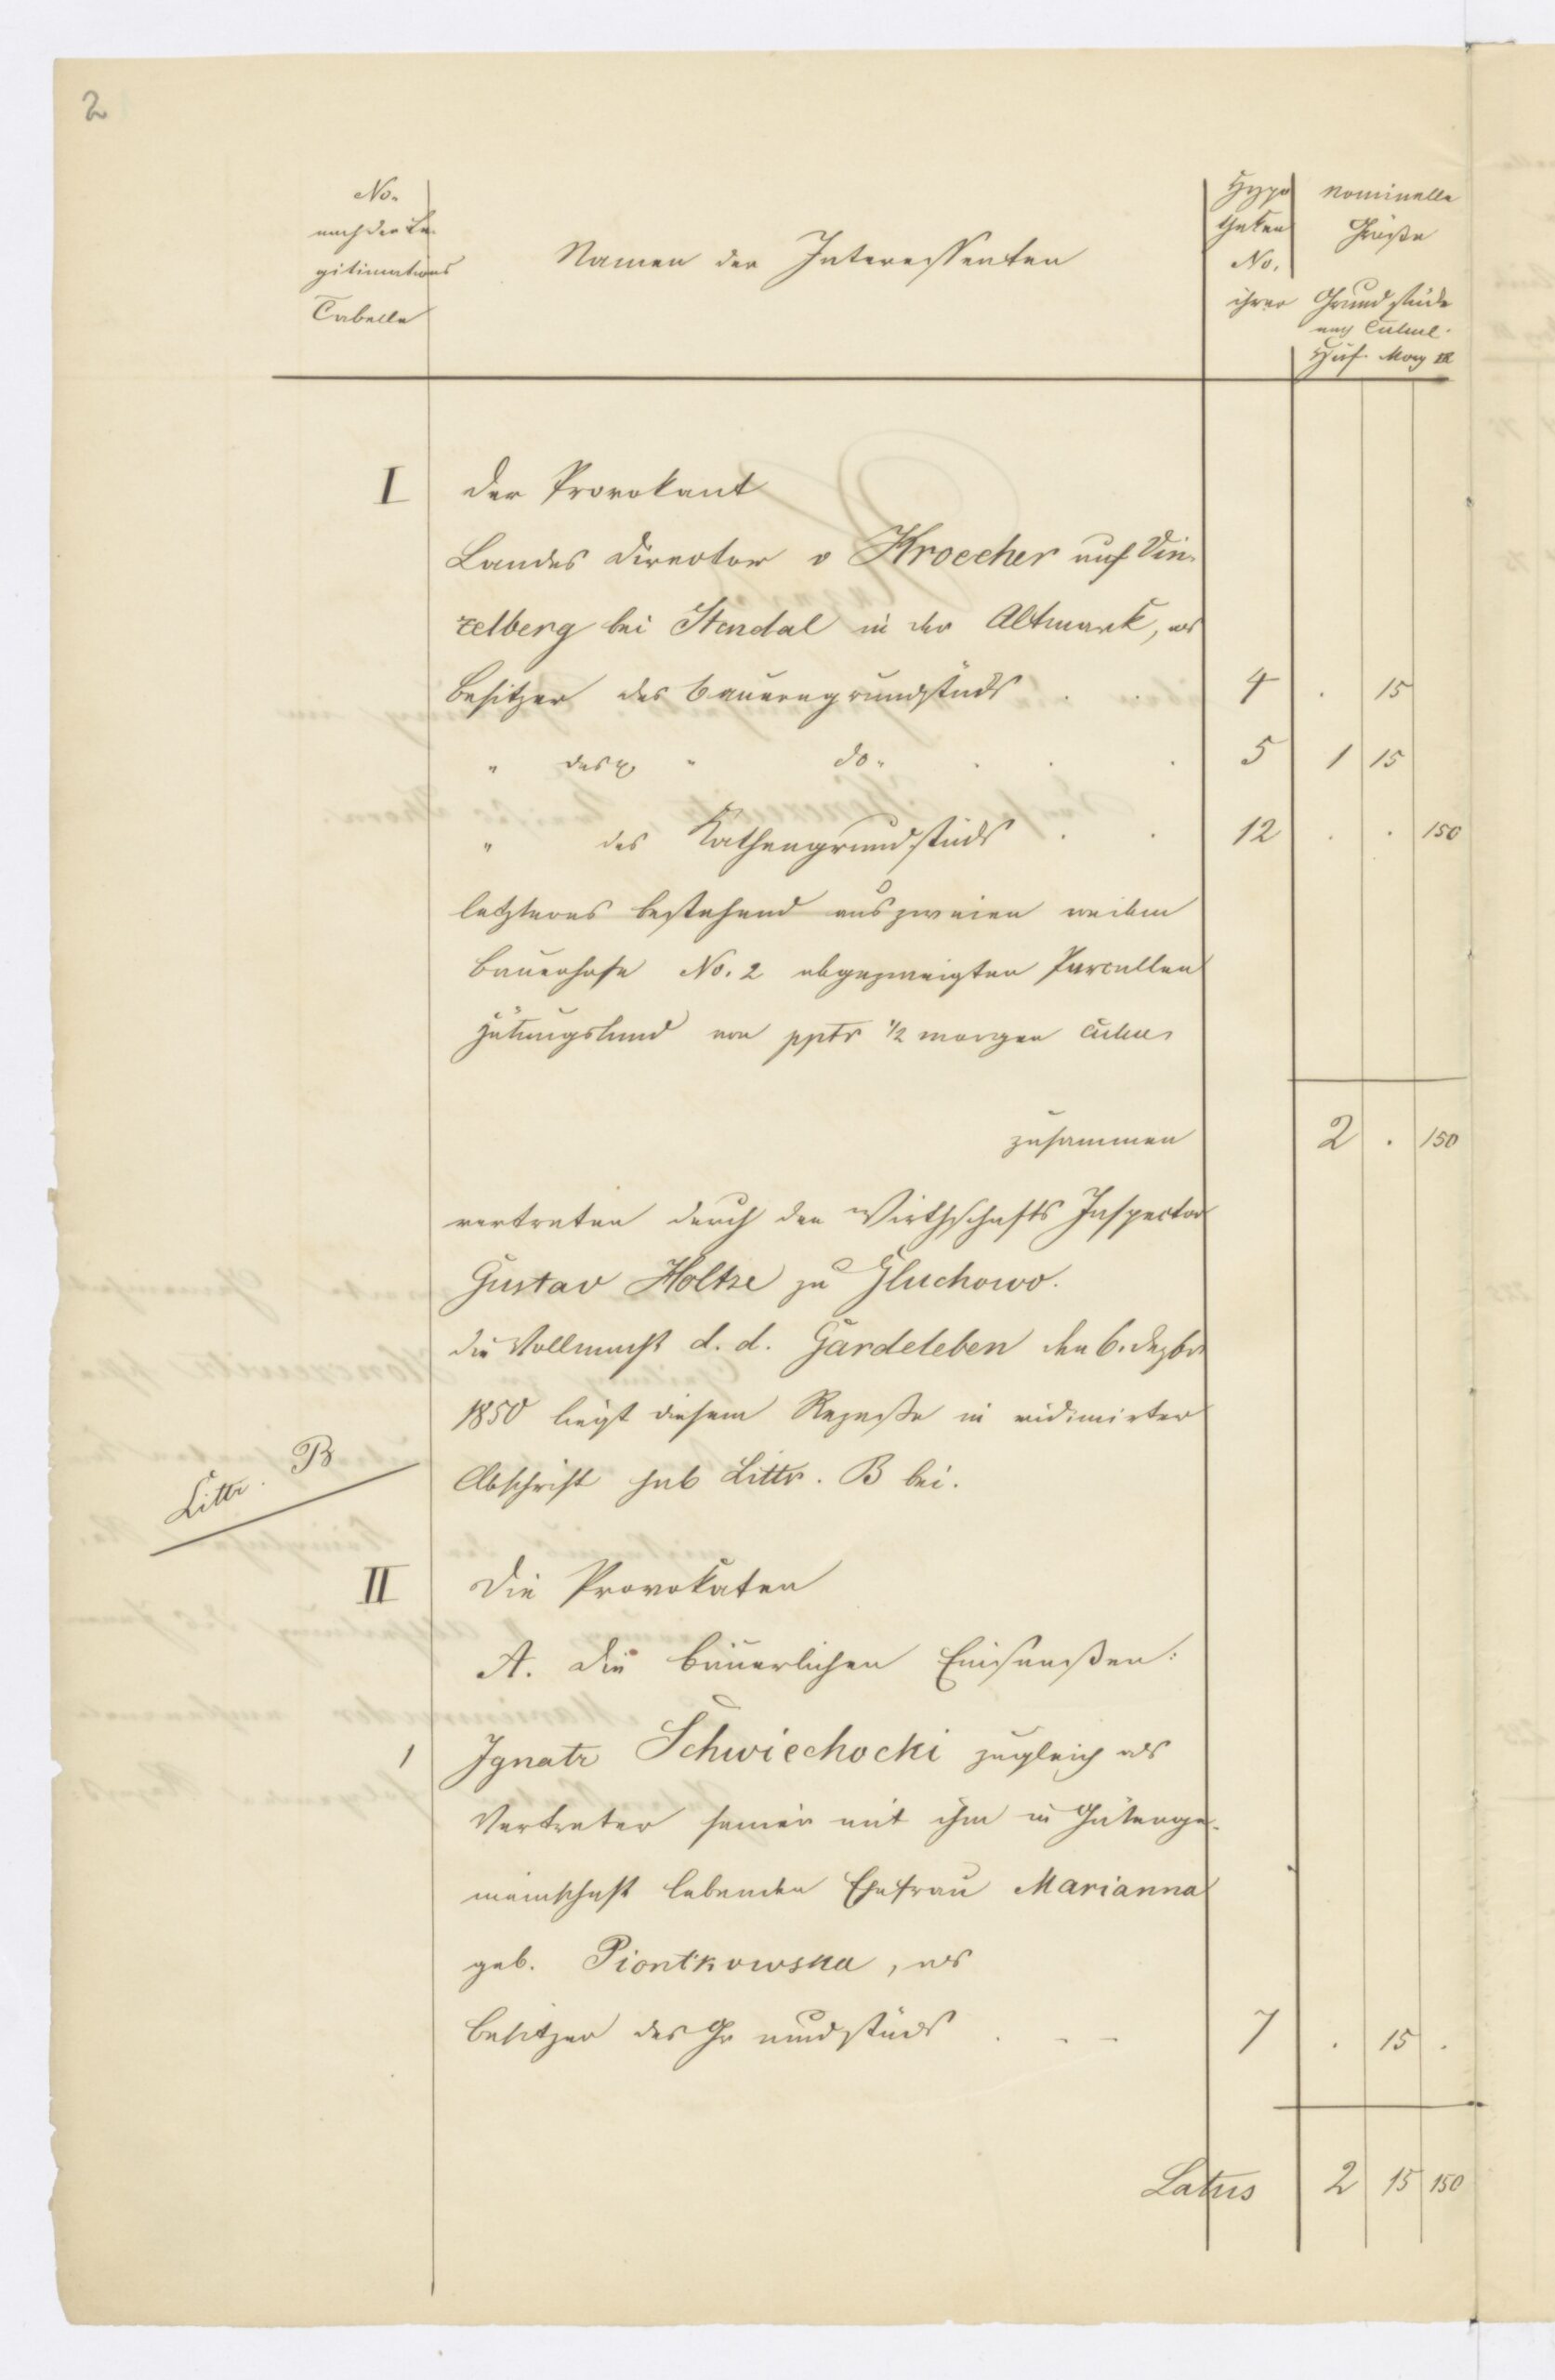 2
No.
nach der Le-
gitimations
Tabelle
Namen der Interessenten
Hypo
theken
No.
nominelle
Größe
ihrer Grundstücke
nach Culm.
Huf. Morg □R
I der Provokant
Landes Director v Kroecher auf Vin-
zelberg bei Stendal in der Altmark, als
Besitzer des Bauerngrundstücks . . 4 . 15
" desgl " do. . . . 5 1 15
" des Kathengrundstücks . . 12 . . 150
letzteres bestehend aus zweien
Bauerhofe No. 2 abgezweigten Parcellen
Hütungsland von ppts 1/2 morgen culm.
zusammen 2 . 150
vertreten durch den Wirthschafts Inspector
Gustav Holtze zu Gluchowo.
die Vollmacht d. d. Gardeleben den 6. Dezbr
1850 liegt diesem Rezesse in vidimirter
Littr. B
Abschrift sub Littr. B bei.
II Die Provokaten
A. Die bäuerlichen Einsaaßen:
1 Ignatz Schwiechocki zugleich als
Vertreter seiner mit ihm in Güterge-
meinschaft lebenden Ehefrau Marianna
geb. Piontkowska, als
Besitzer des Grundstücks . - - 7 . 15 .
Latus 2 15 150